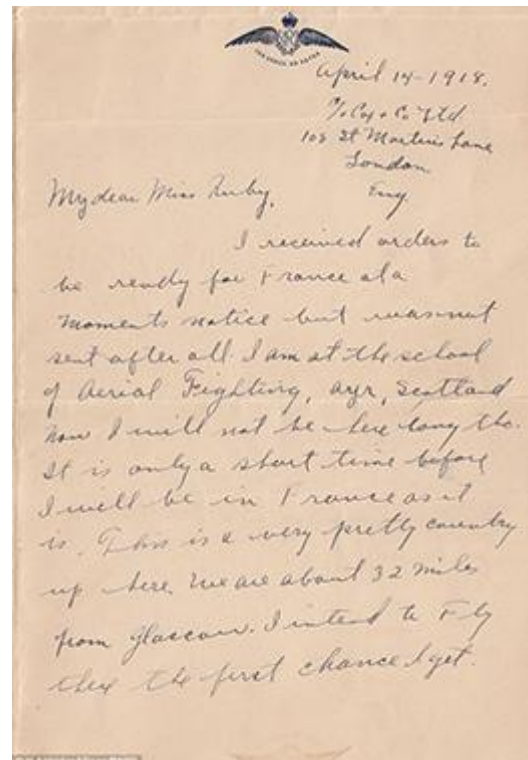 April 14-1918.
c/o Cox & Co Ltd.
108 St Martins Lane
London
Eng.
My dear Miss Ruby,
I received orders to
be ready for France at a
moments notice but was not
sent after all. I am at the school
of Aerial Fighting, Ayr, Scotland
now I will not be here long tho.
It is only a short time before
I will be in France as it
is. This is a very pretty country
up here. We are about 32 miles
from Glascow. I intend to Fly
there the first chance I get.